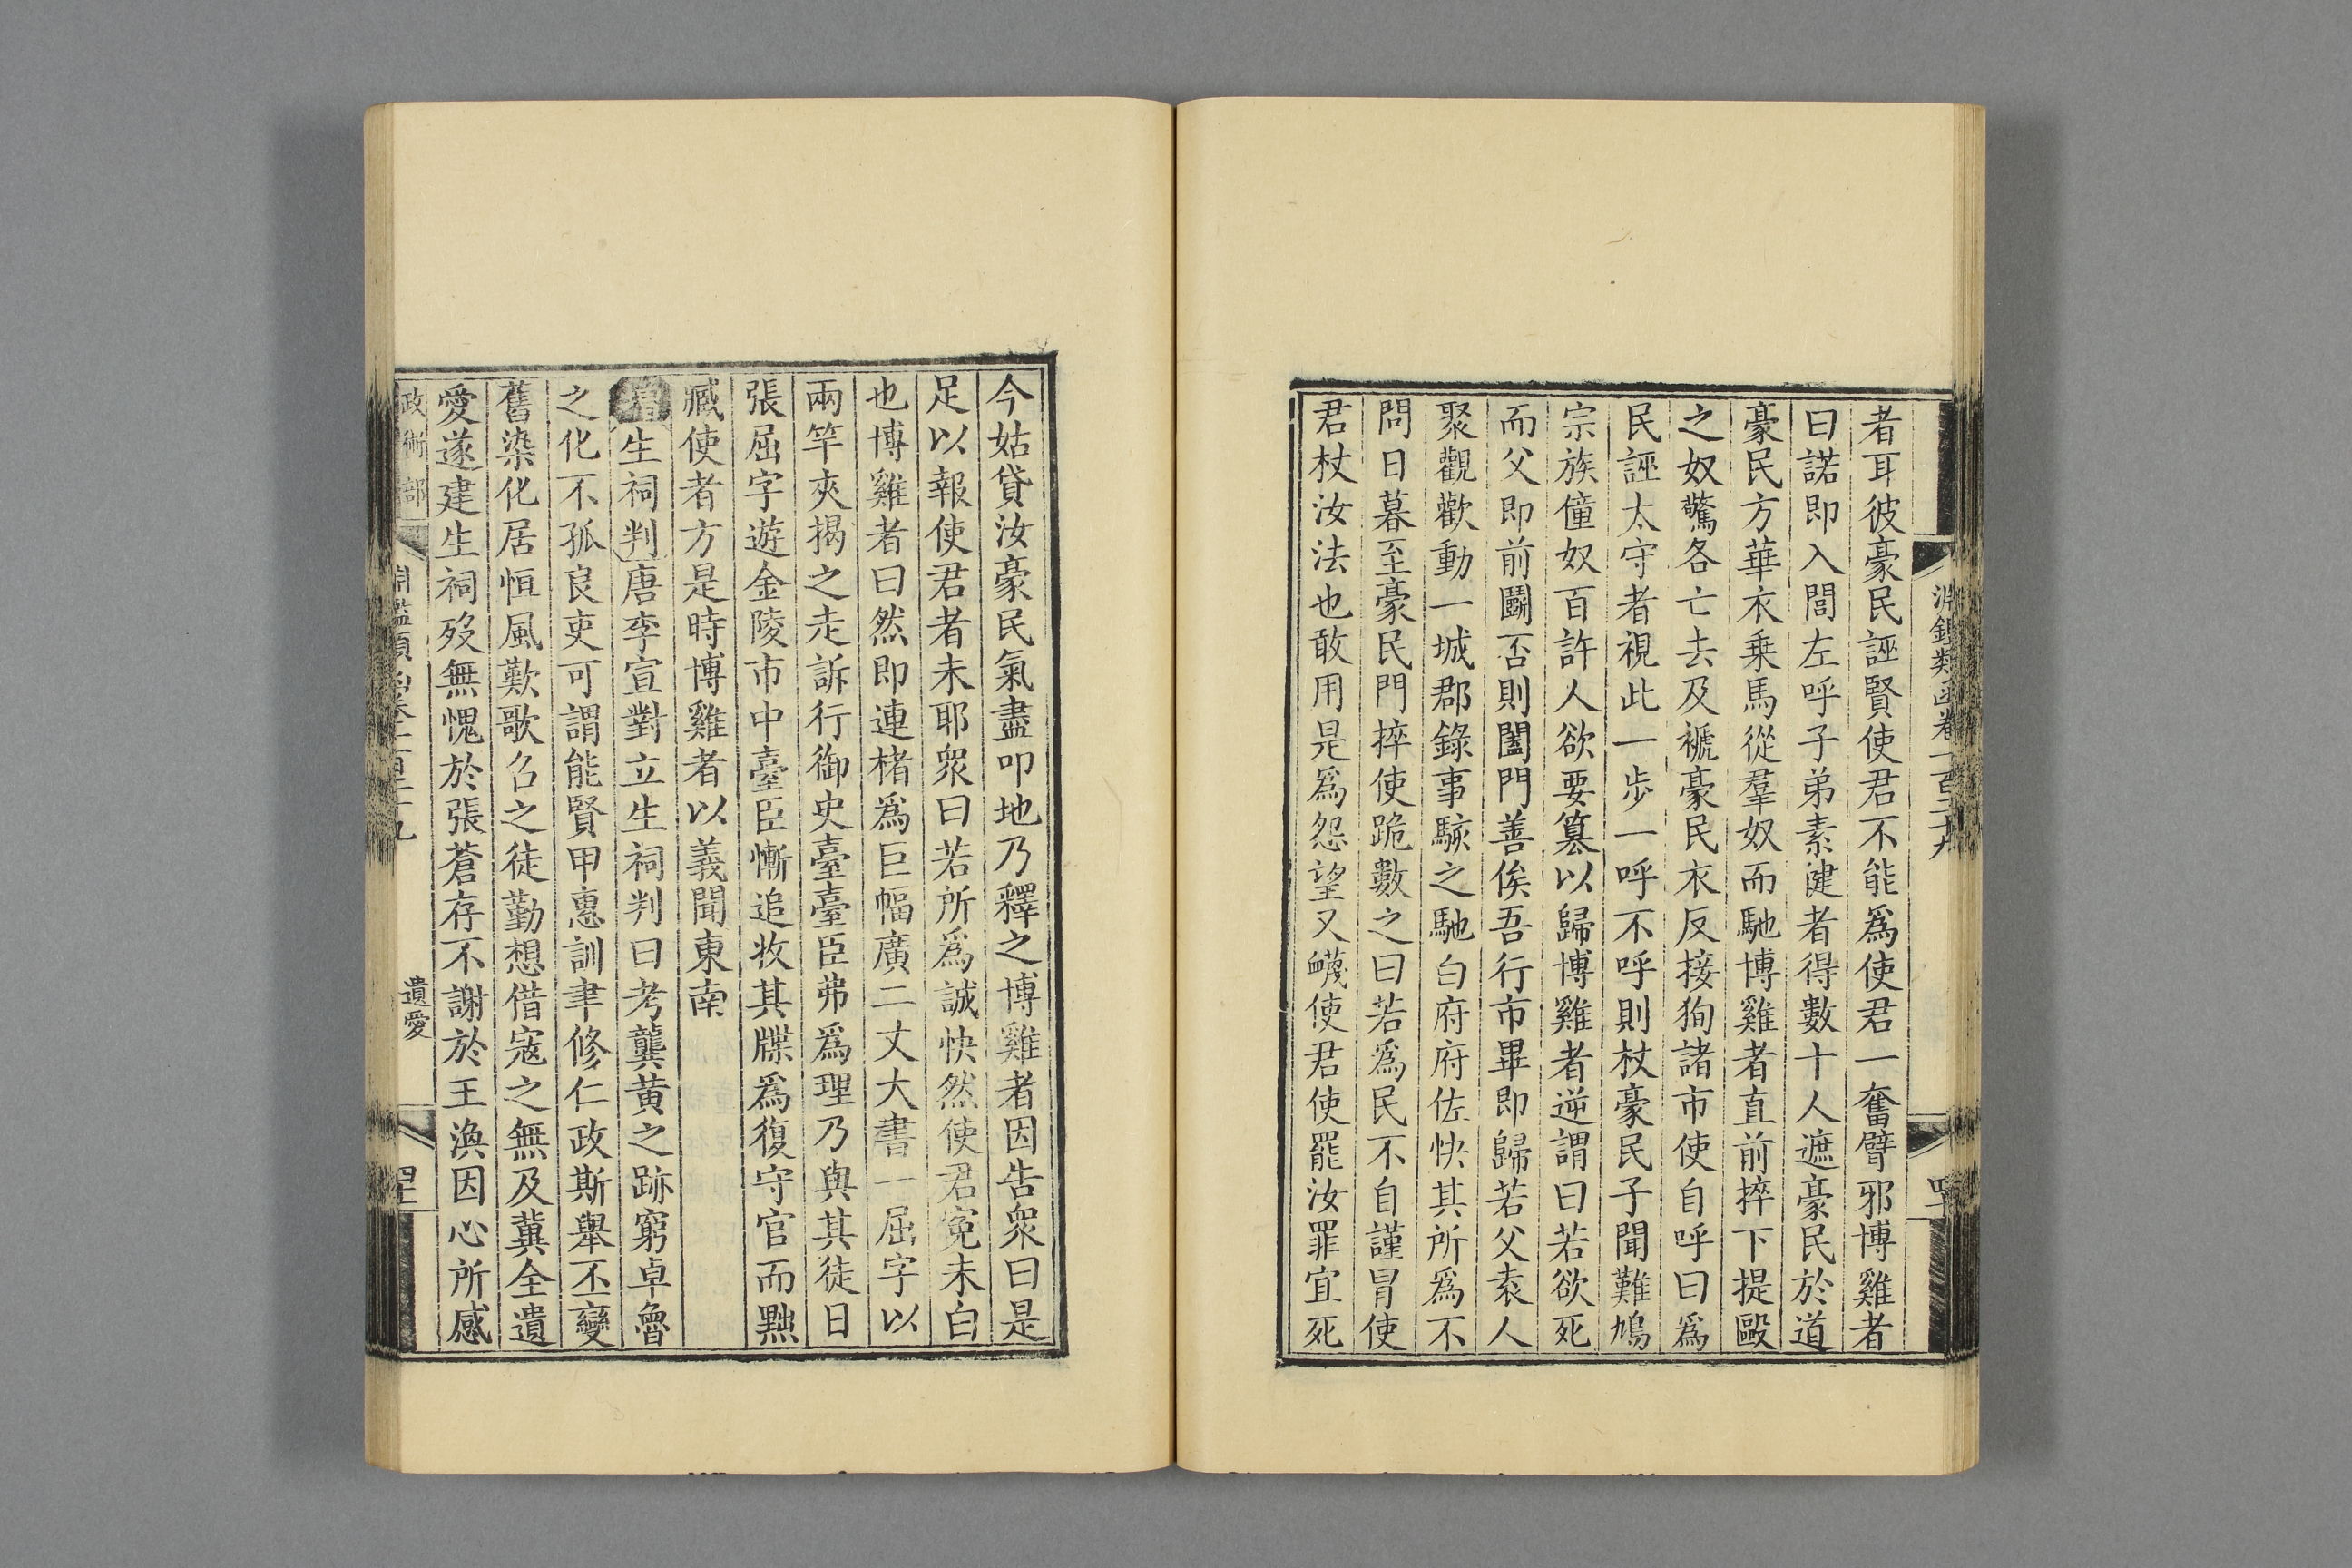 淵鑑類函卷一百二十九
者耳彼豪民誣賢使君不能爲使君一奮臂邪博雞者
曰諾即入閭左呼子弟素健者得數十人遮豪民於道
豪民方華衣乗馬從羣奴而馳博雞者直前捽下提毆
之奴驚各亡去及褫豪民衣反接狥諸市使自呼曰爲
民誣太守者視此一步一呼不呼則杖豪民子聞難鳩
宗族僮奴百許人欲要篡以歸博雞者逆謂曰若欲死
而父即前鬭否則闔門善俟吾行市畢即歸若父袁人
聚觀歡動一城郡錄事駭之馳白府府佐快其所爲不
問日暮至豪民門捽使跪數之曰若爲民不自謹冒使
君杖汝法也敢用是爲怨望又衊使君使罷汝罪宜死
今姑貸汝豪民氣盡叩地乃釋之博雞者因告衆曰是
足以報使君者未耶衆曰若所爲誠快然使君寃未白
也博雞者曰然即連楮爲巨幅廣二丈大書一屈字以
兩竿夾揭之走訴行御史臺臺臣弗爲理乃與其徒日
張屈字遊金陵市中臺臣慚追牧其牒爲復守官而黜
臧使者方是時博雞者以義聞東南
生祠判唐李宣對立生祠判曰考龔黄之跡窮卓魯
之化不孤良吏可謂能賢甲惠訓聿修仁政斯舉丕變
舊染化居恒風歎歌召之徒勤想借寇之無及冀全遺
愛遂建生祠歿無愧於張蒼存不謝於王渙因心所感
政術部
遺愛